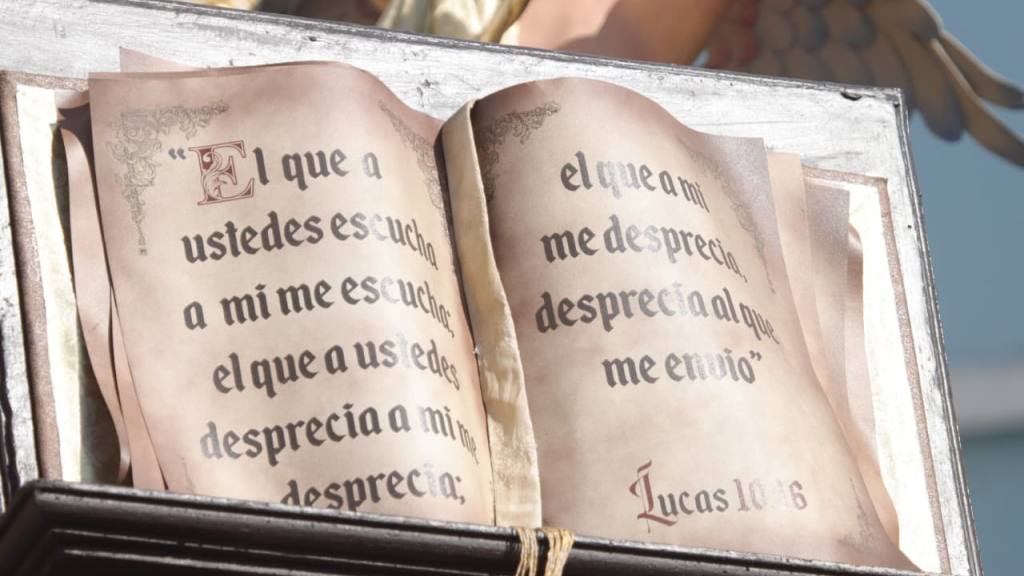 “El que a
ustedes escucha
a mi me escucha;
el que a ustedes
desprecia a mi me
desprecia;
el que a mi
me desprecia,
desprecia al que
me envio”
Lucas 10:16